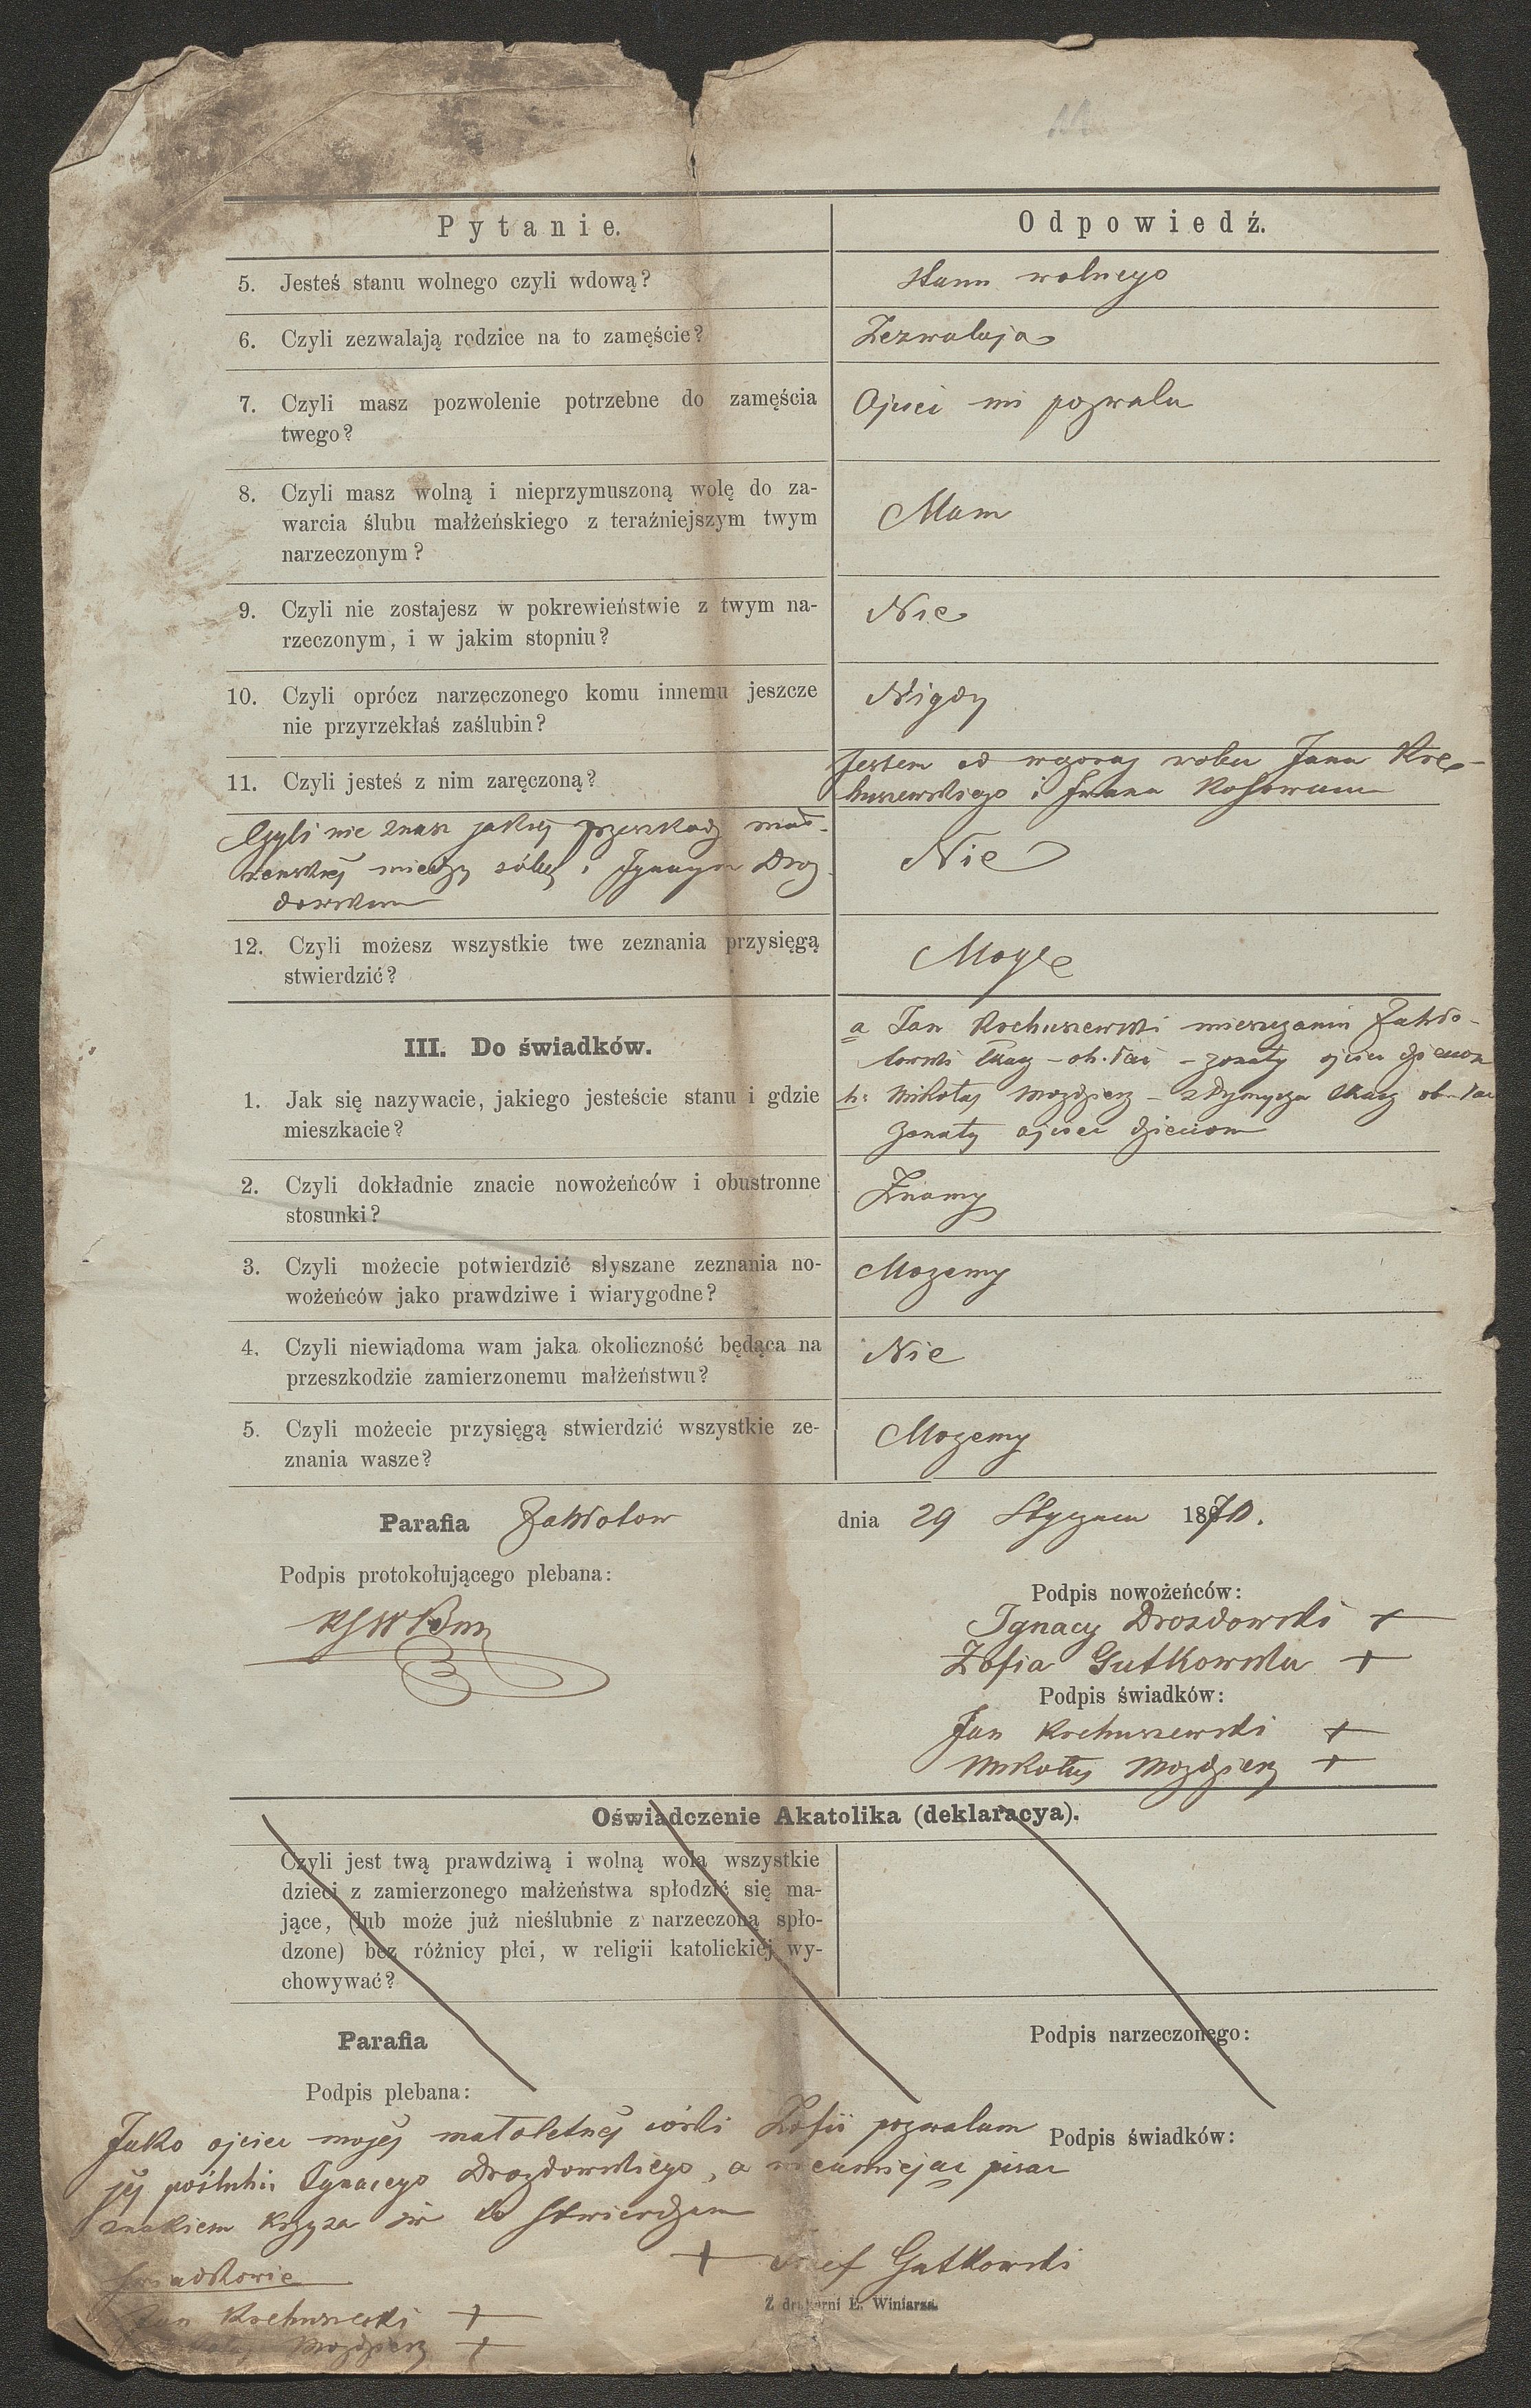 Pytanie.
Odpowiedź.
5. Jesteś stanu wolnego czyli wdową?
stanu wolnego
6. Czyli zezwalają rodzice na to zamęście?
Zezwalają
7. Czyli masz pozwolenie potrzebne do zamęścia
twego?
Ojciec mi pozwala
8. Czyli masz wolną i nieprzymuszoną wolę do za-
warcia ślubu małżeńskiego z teraźniejszym twym
narzeczonym?
Mam
9. Czyli nie zostajesz w pokrewieństwie z twym na-
rzeczonym, i w jakim stopniu?
Nie
10. Czyli oprócz narzeczonego komu innemu jeszcze
nie przyrzekłaś zaślubin?
Nigdy
11. Czyli jesteś z nim zaręczoną?
Jestem od wczoraj wobec Jana
i
Czyli nie znasz jakiej przeszkody mał-
żenskiej miedzy sobą i Ignacym Droz
dowskim
Nie
12. Czyli możesz wszystkie twe zeznania przysięgą
stwierdzić?
Mogę
III. Do świadków.
1. Jak się nazywacie, jakiego jesteście stanu i gdzie
mieszkacie?
a Jan Rochuszewski mieszczanin Zabło-
towski tkacz - ob. łac - żonaty ojciec dzieciom
b: Mikołaj Mozdzierz - z Dymycza tkacz ob. łac
żonaty ojciec dzieciom
2. Czyli dokładnie znacie nowożeńców i obustronne
stosunki?
Znamy
3. Czyli możecie potwierdzić słyszane zeznania no-
wożeńców jako prawdziwe i wiarygodne?
Mozemy
4. Czyli niewiadoma wam jaka okoliczność będąca na
przeszkodzie zamierzonemu małżeństwu?
Nie
5. Czyli możecie przysięgą stwierdzić wszystkie ze-
znania wasze?
Mozemy
Parafia Zabłotow
dnia 29 Stycznia 1870.
Podpis protokołującego plebana:
Podpis nowożeńców:
Ignacy Drozdowski +
Zofia Gutkowska +
Podpis świadków:
Jan Rochuszewski +
Mikołaj Mozdzierz +
Oświadczenie Akatolika (deklaracya).
Czyli jest twą prawdziwą i wolną wolą wszystkie
dzieci z zamierzonego małżeństwa spłodzić się ma-
jące, (lub może już nieślubnie z narzeczoną spło-
dzone) bez różnicy płci, w religii katolickiej wy-
chowywać?
Parafia
Podpis narzeczonego:
Podpis plebana:
Podpis świadków:
Jako ojciec mojej małoletnej córki Zofii pozwalam
jej poślubić Ignacego Drozdowskiego, a nieumiejąc pisac
znakiem krzyza św to stwierdzam
+ Józef Gutkowski
Swiadkowie
Jan Rochuszewski +
Mikołaj Mozdzierz +
Z drukarni E. Winiarza.